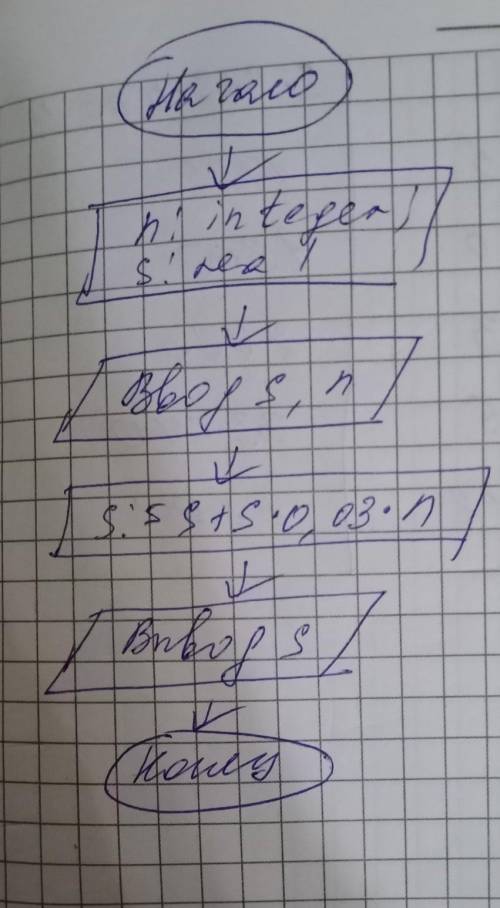 Начало
n: integer;
s: real
Ввод s, n
s:= s+s·0,03·n
Вывод s
Конец